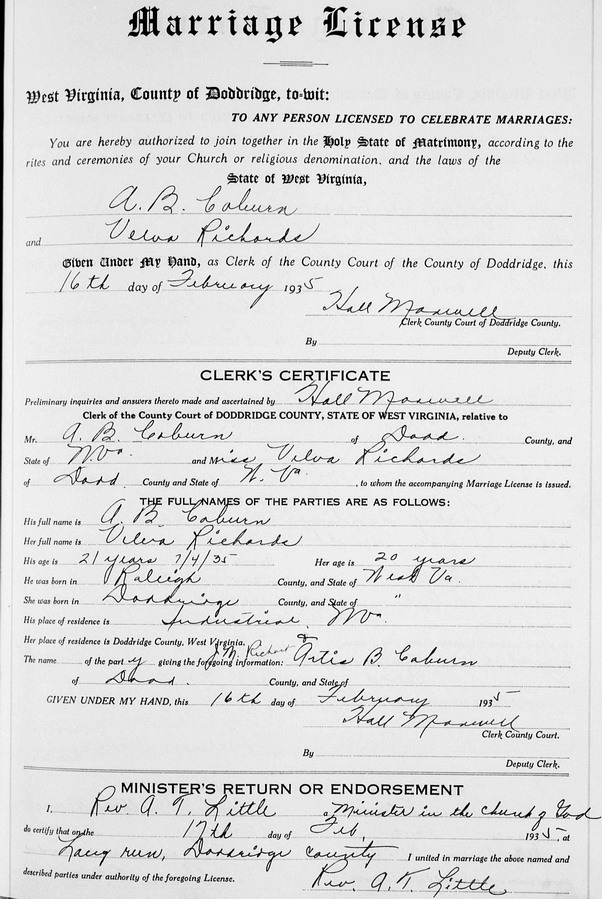 Marriage License
West Virginia, County of Doddridge, to-wit:
TO ANY PERSON LICENSED TO CELEBRATE MARRIAGES:
You are hereby authorized to join together in the Holy State of Matrimony, according to the
rites and ceremonies of your Church or religious denomination, and the laws of the
State of West Virginia,
A. B. Coburn
and Velva Richards
Given Under My Hand, as Clerk of the County Court of the County of Doddridge, this
16th day of February 1935
Hall Maxwell
Clerk County Court of Doddridge County.
By
Deputy Clerk.
CLERK'S CERTIFICATE
Preliminary inquiries and answers thereto made and ascertained by Hall Maxwell
Clerk of the County Court of DODDRIDGE COUNTY, STATE OF WEST VIRGINIA, relative to
Mr. A. B. Coburn of Dodd. County, and
State of W.Va. and Miss Velva Richards
of Dodd County and State of W. Va. , to whom the accompanying Marriage License is issued.
THE FULL NAMES OF THE PARTIES ARE AS FOLLOWS:
His full name is A. B. Coburn
Her full name is Velva Richards
His age is 21 years 7/4/35 Her age is 20 years
He was born in Raleigh County, and State of West Va.
She was born in Doddridge County, and State of "
His place of residence is Industrial, W Va.
Her place of residence is Doddridge County, West Virginia.
J. M. Richard &
The name of the part y giving the foregoing information: Artis B. Coburn
of Dodd. County, and State of
GIVEN UNDER MY HAND, this 16th day of February 1935
Hall Maxwell
Clerk County Court.
By
Deputy Clerk.
MINISTER'S RETURN OR ENDORSEMENT
I, Rev. A. T. Little a Minister in the church of God
do certify that on the 17th day of Feb, 1935, at
Long run, Doddridge County I united in marriage the above named and
described parties under authority of the foregoing License.
Rev. A. T. Little